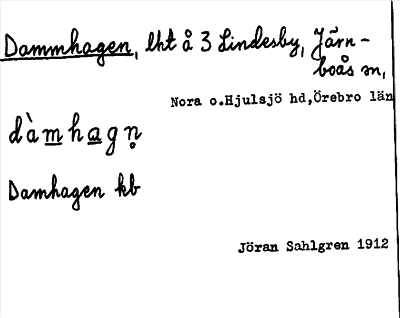 Dammhagen, lht å 3 Lindesby, Järn-
boås sn,
Nora o.Hjulsjö hd,Örebro län
dàmhagn̥
Damhagen kb
Jöran Sahlgren 1912